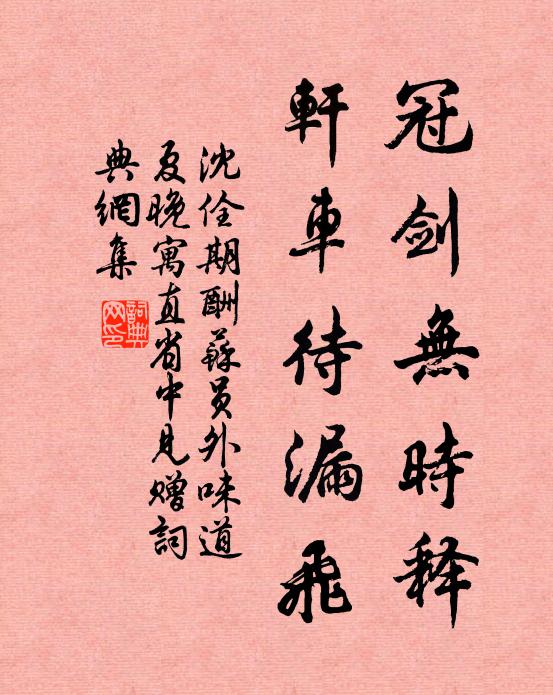 冠剑無時释
軒車待漏飛
沈佺期酬蘇員外味道
夏晚寓直省中見贈詞
典網集
詞典网印